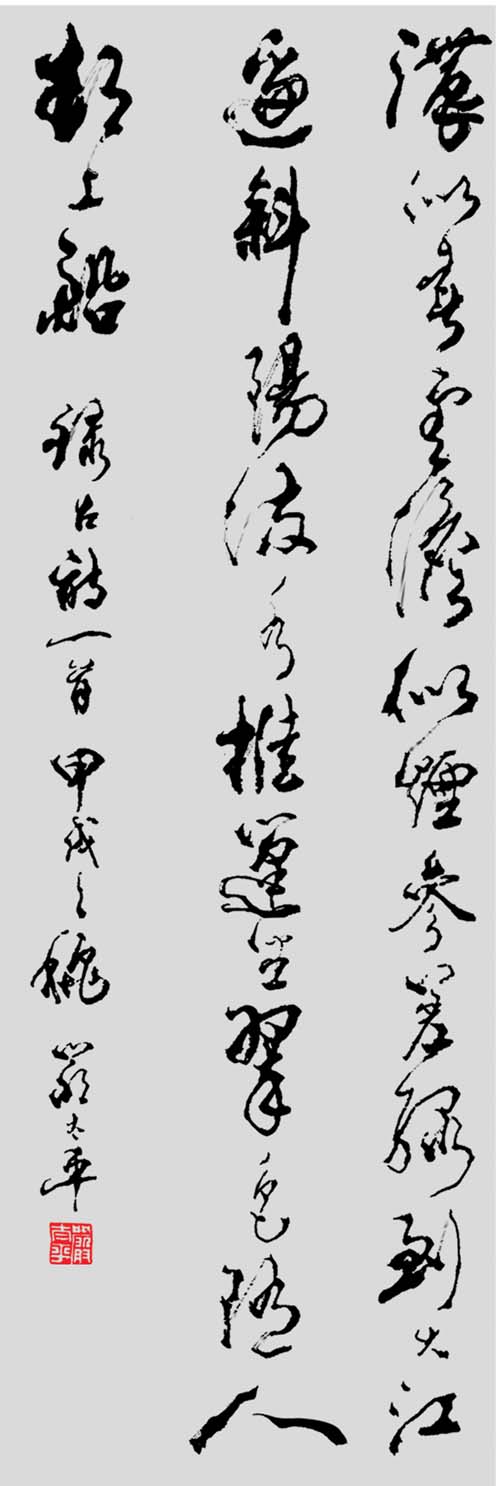 濃似春雲澹似煙參差綠到大江
邊斜陽流水推篷坐翠色隨人
欲上船 錄古詩一首 甲戌之穐 嚴太平